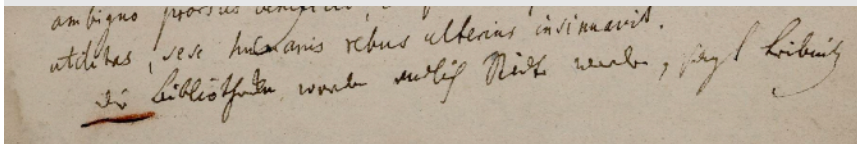 ambiguo prorsus
utilitas, sese humanis rebus ulterius insinuavit.
die Bibliotheken werden endlich Städte werden, sagt Leibnitz